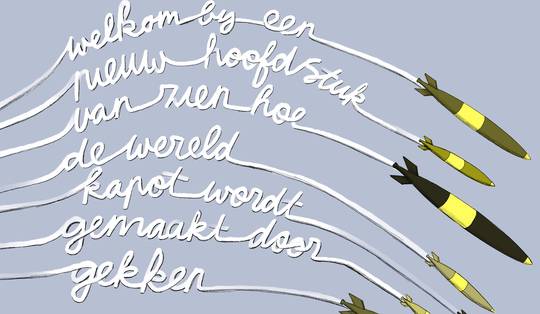 welkom by een
nieuw hoofdstuk
van zien hoe
de wereld
kapot wordt
gemaakt door
gekken